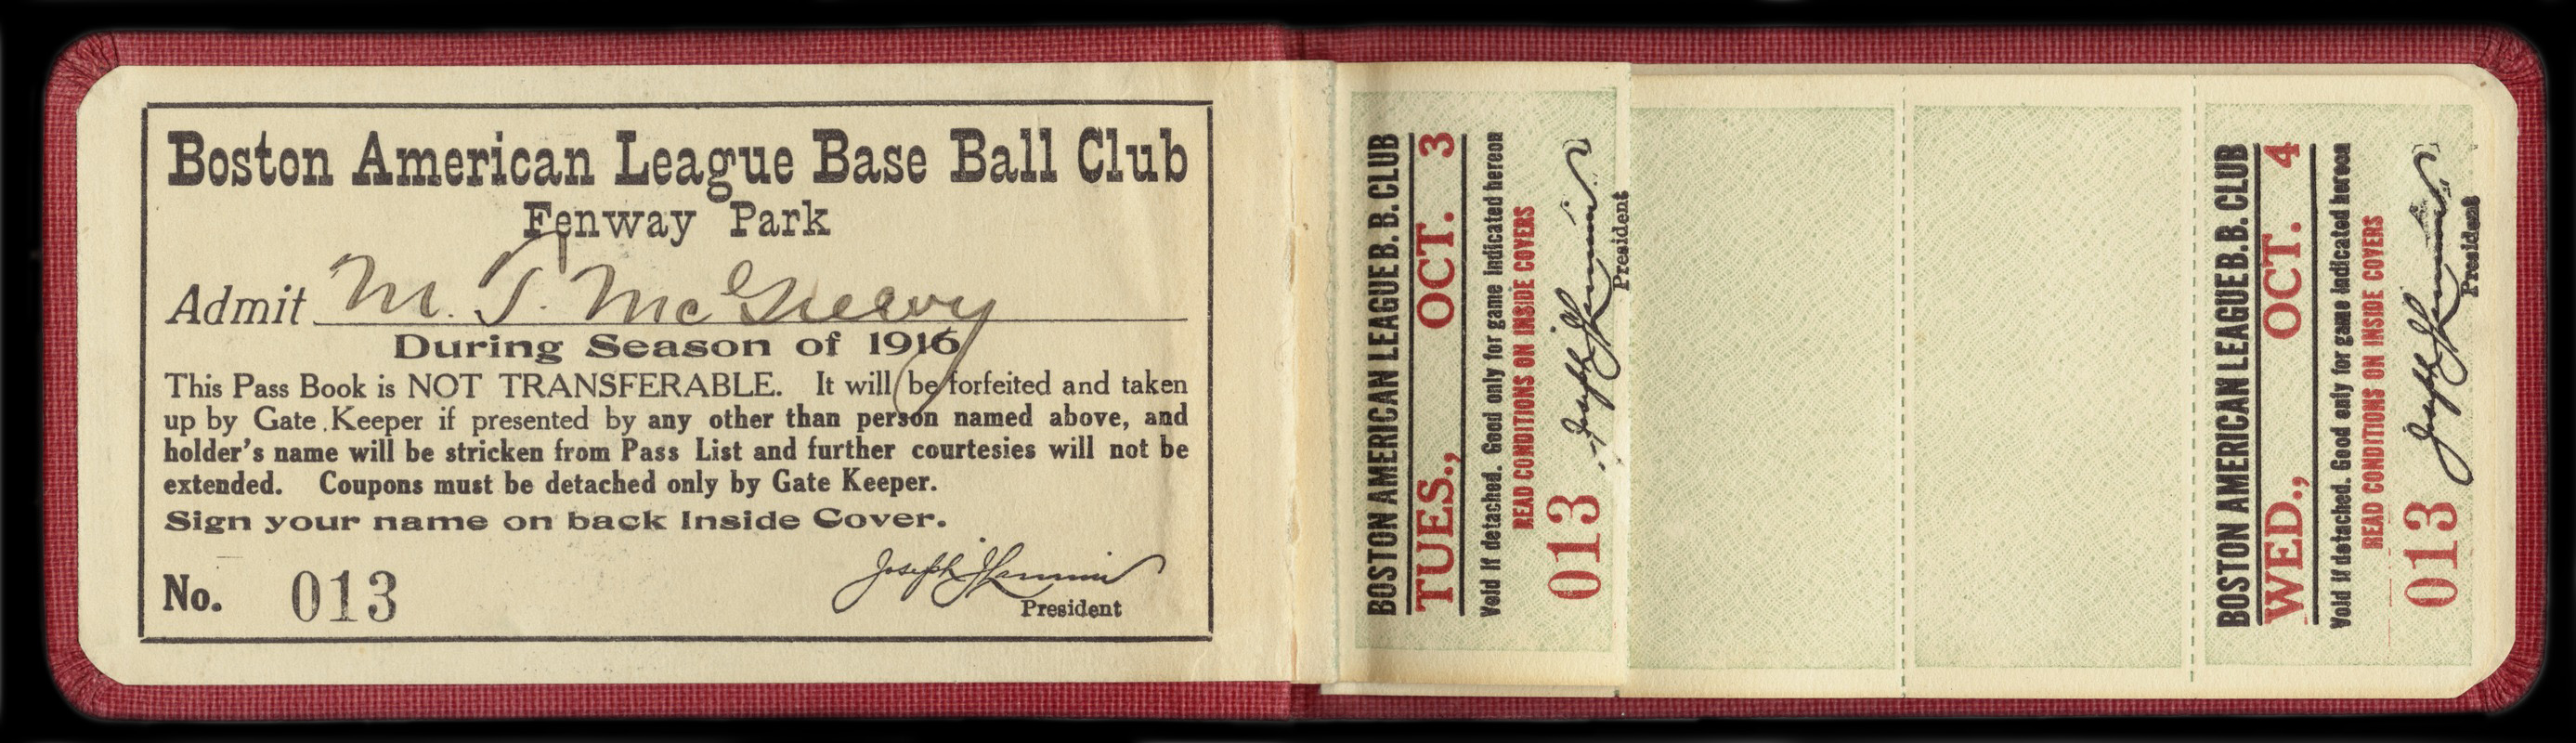 Boston American League Base Ball Club
Fenway Park
Admit M. T. McGreevy
During Season of 1916
This Pass Book is NOT TRANSFERABLE. It will be forfeited and taken
up by Gate Keeper if presented by any other than person named above, and
holder's name will be stricken from Pass List and further courtesies will not be
extended. Coupons must be detached only by Gate Keeper.
Sign your name on back Inside Cover.
No. 013
Joseph J Lannin
President
BOSTON AMERICAN LEAGUE B. B. CLUB
TUES., OCT. 3
Void if detached. Good only for game indicated hereon
READ CONDITIONS ON INSIDE COVERS
013 Joseph J Lannin
President
BOSTON AMERICAN LEAGUE B. B. CLUB
WED., OCT. 4
Void if detached. Good only for game indicated hereon
READ CONDITIONS ON INSIDE COVERS
013 Joseph J Lannin
President